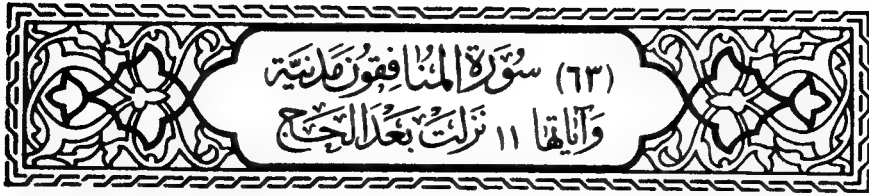 (٦٣) سُورَة المنَافِقون مَدنيَّة
وَآيَاتهَا ١١ نَزَلتْ بَعْدَ الحَجّ